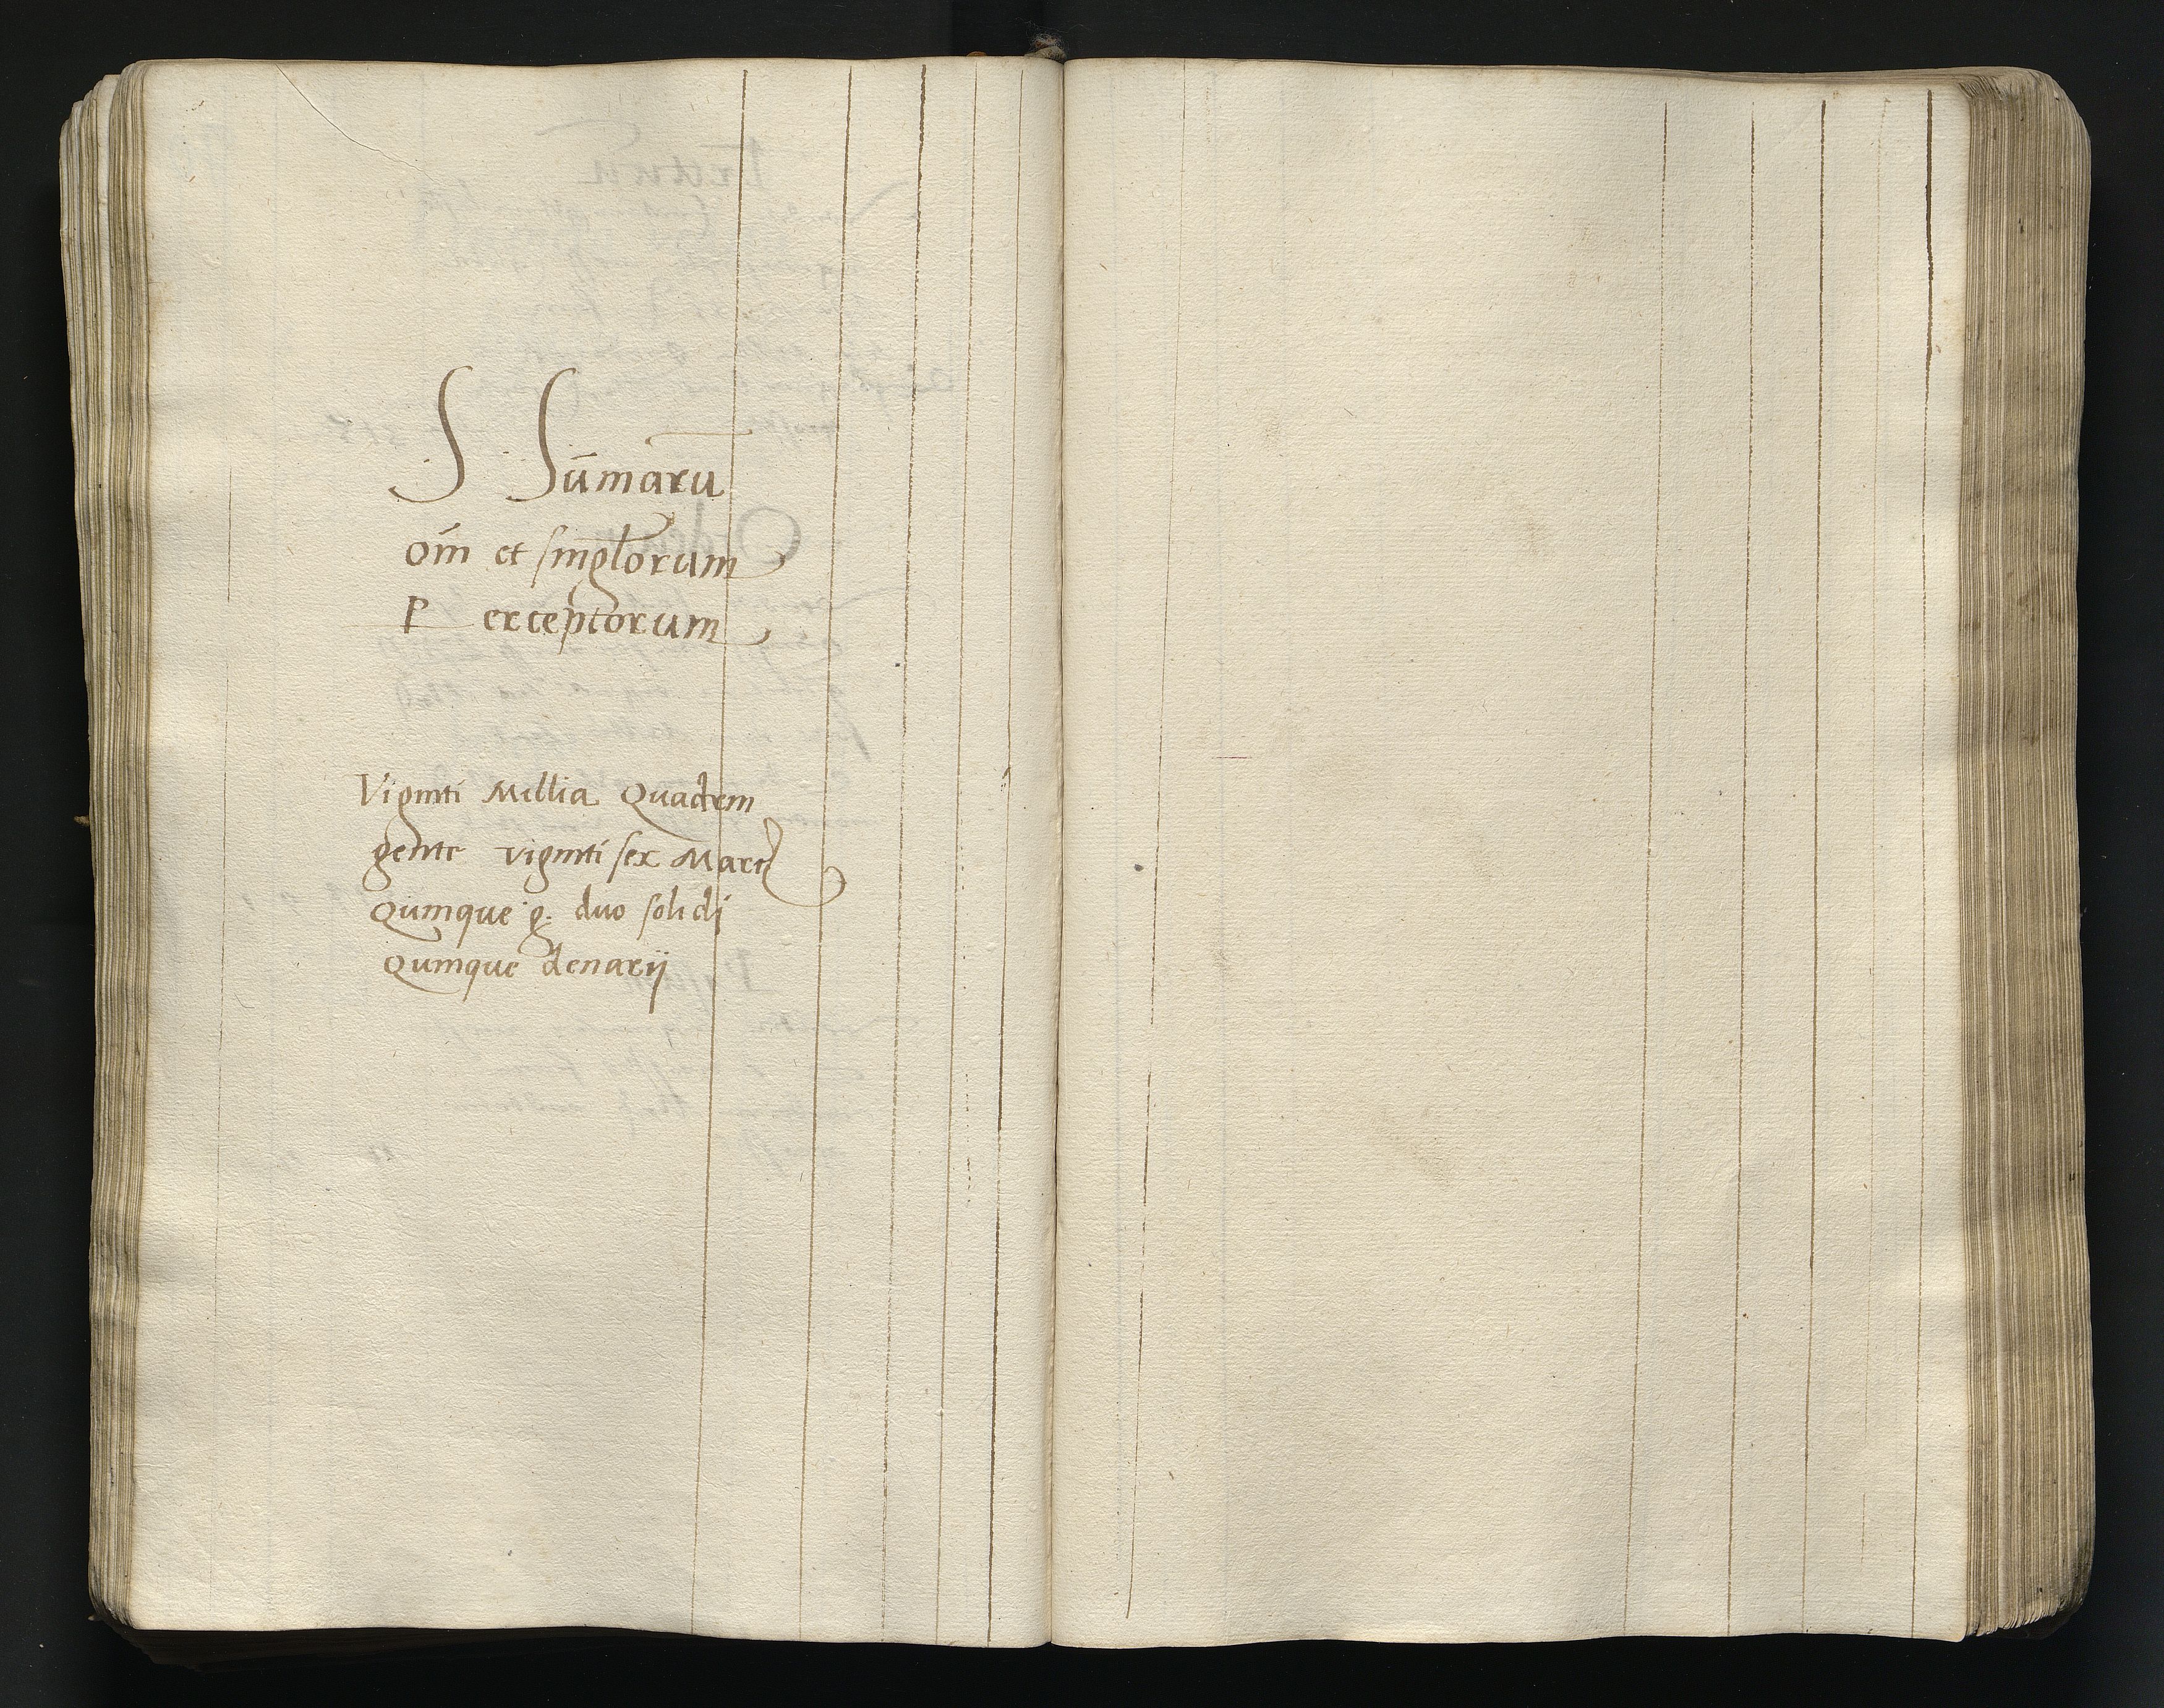 S Sūmarū
om̄ et singlorum
Perceptorum
Viginti Millia Quadrin
gente viginti sex Marcȝ
Quinque g. duo solidi
Quinque denarij